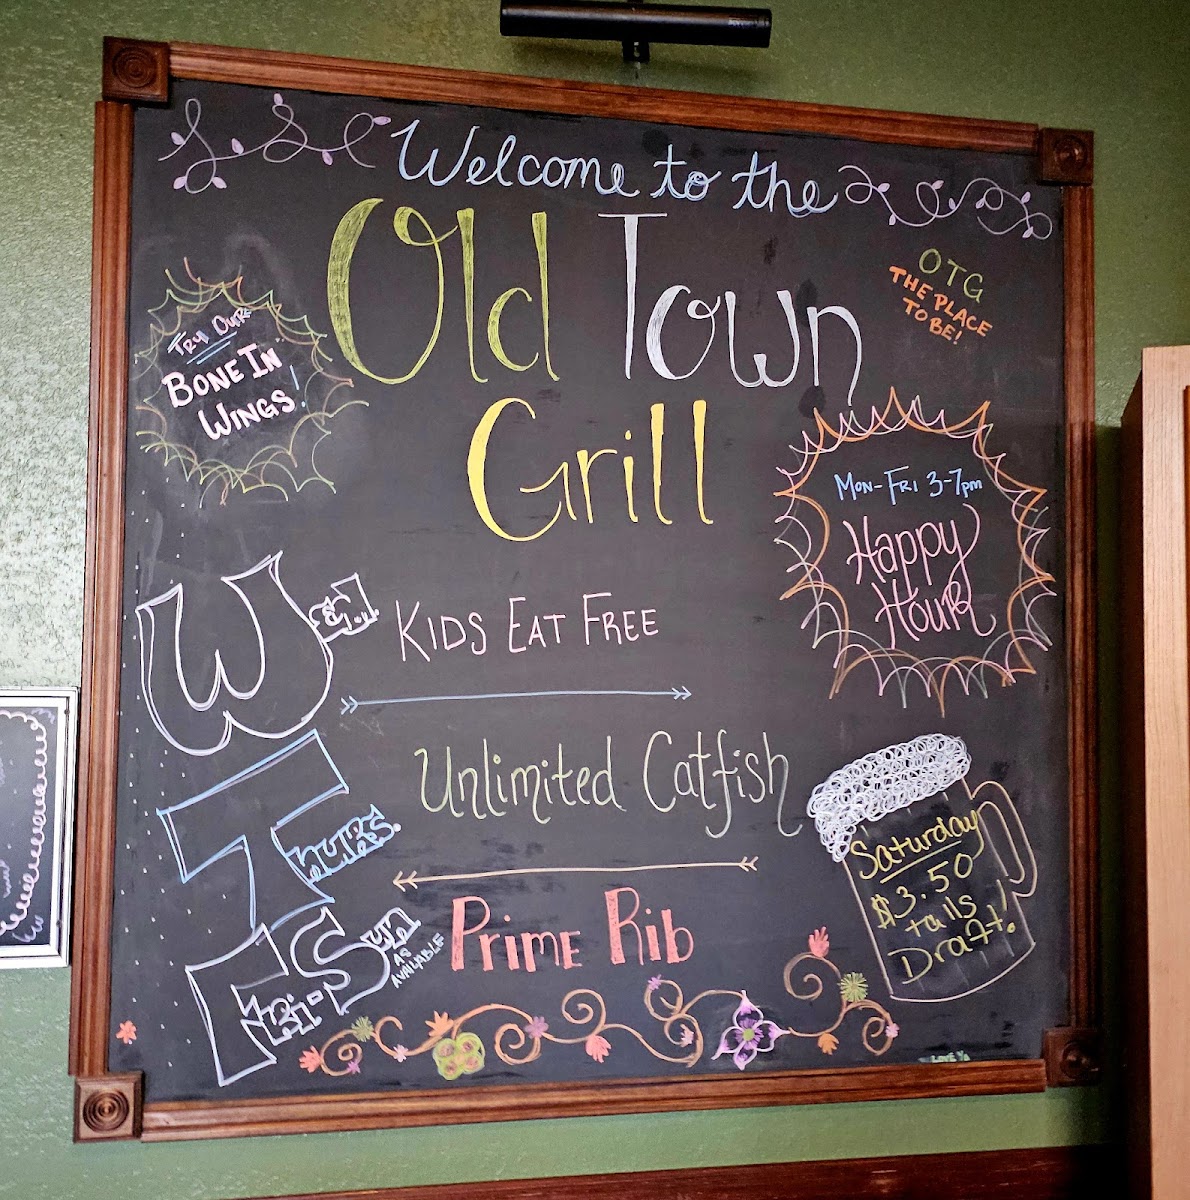 Welcome to the
Old Town
Grill
OTG
THE PLACE
TO BE!
TRY OUR
BONE IN
WINGS!
MON-FRI 3-7pm
Happy
Hour
Wed.
KIDS EAT FREE
Thurs.
Unlimited Catfish
Fri-Sun
AS
AVAILABLE
PRIME RIB
Saturday
$3.50
talls
Draft!